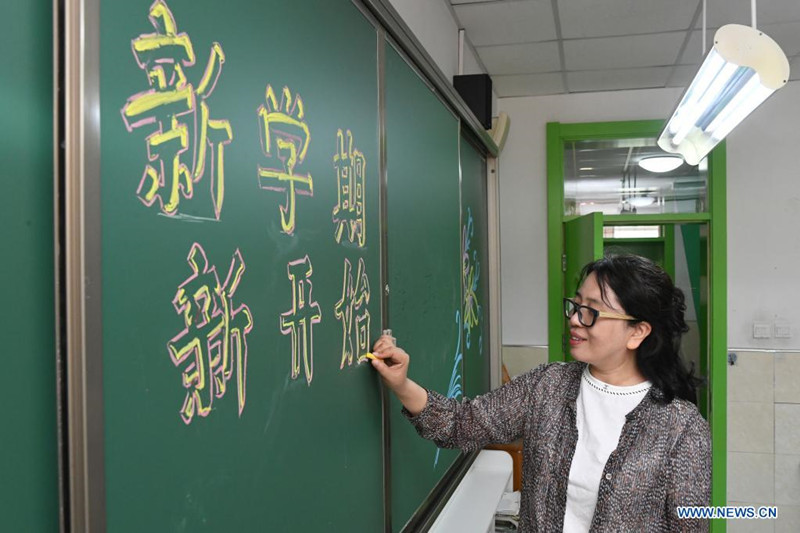 新学期
新开始
WWW.NEWS.CN